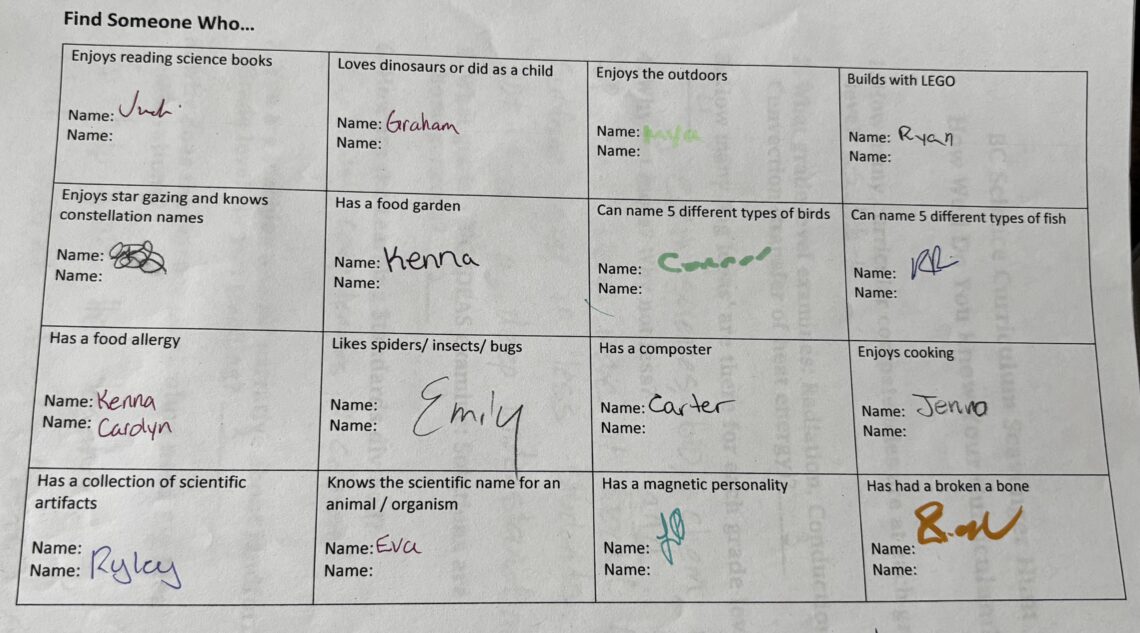 Find Someone Who...
Enjoys reading science books
Name:
Name:
Loves dinosaurs or did as a child
Name: Graham
Name:
Enjoys the outdoors
Name:
Name:
Builds with LEGO
Name: Ryan
Name:
Enjoys star gazing and knows
constellation names
Name:
Name:
Has a food garden
Name: Kenna
Name:
Can name 5 different types of birds
Name: Connor
Name:
Can name 5 different types of fish
Name:
Name:
Has a food allergy
Name: Kenna
Name: Carolyn
Likes spiders/ insects/ bugs
Name: Emily
Name:
Has a composter
Name: Carter
Name:
Enjoys cooking
Name: Jenna
Name:
Has a collection of scientific
artifacts
Name:
Name: Ryley
Knows the scientific name for an
animal / organism
Name: Eva
Name:
Has a magnetic personality
Name:
Name:
Has had a broken a bone
Name:
Name: